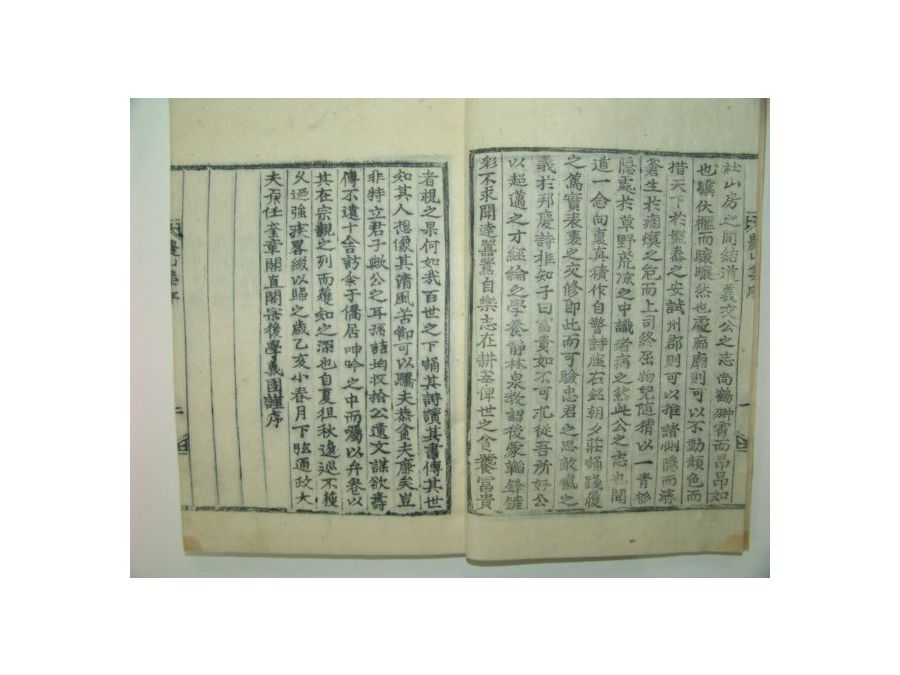 社山房之間結道義交公之志尚鶴翀霄而昂昂如
也驥伏櫪而驤然也處廊廟則可以不動顔色而
措天下於盤泰之安試州郡則可以推諸惻隱而濟
蒼生於痌瘝之危而上司終屈物兒喧猜以一青衫
隱處於草野荒凉之中識者病之然此公之志也聞
道一念向裏眞積作自警詩座右銘朝夕莊誦踐履
之篤實表裏之交修卽此而可驗忠君之思敵愾之
義於邦慶詩推知子曰富貴如不可求從吾所好公
以超邁之才經綸之學養靜林泉敎詔後蒙韜鋒鏟
彩不求聞達囂囂自樂志在耕莘俾世之貪饕富貴
者視之果何如我百世之下誦其詩讀其書傳其世
知其人想像其淸風苦節可以驕夫恭貪夫廉矣豈
非特立君子歟公之耳孫詰均收拾公遺文謀欲壽
傳不遠十舍訪余于僑居呻吟之中而囑以弁卷以
其在宗觀之列而蔭知之深也自夏徂秋逡巡不穫
久迺強疾畧綴以歸之歲乙亥小春月下弦通政大
夫原任奎章閣直閣宗後學義國謹序
巖山集序
二
巖山集序
一